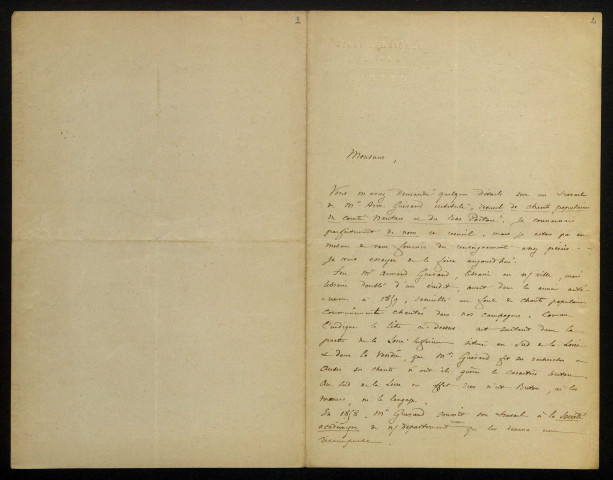 2
2
Monsieur,
Vous m'avez demandé quelques détails sur un travail
de Mr Arm. Guéraud intitulé, recueil de chants populaires
du comté Nantais et du bas Poitou. Je connaissais
parfaitement de nom ce recueil, mais je n'étais pas en
mesure de vous fournir des renseignements assez précis
Je vais essayer de le faire aujourd'hui.
Feu Mr Armand Guéraud, libraire en n/ ville, mais
libraire doublé d'un érudit, avait dans les années
à 1859, recueilli un grand de chants populaires
communément chantés dans nos campagnes. Comme
l'indique le titre ci-dessus c'est surtout dans la
partie de la Loire inférieure située au Sud de la Loire
et dans la Vendée, que Mr Guéraud fit ses recherches
ses chants n'ont-ils guère le caractère breton
Au Sud de la Loire en effet rien n'est Breton, ni les
mœurs, ni le langage.
En 1858, Mr Guéraud soumit son travail à la Société
académique de n/ département qui lui décerna une
récompense.